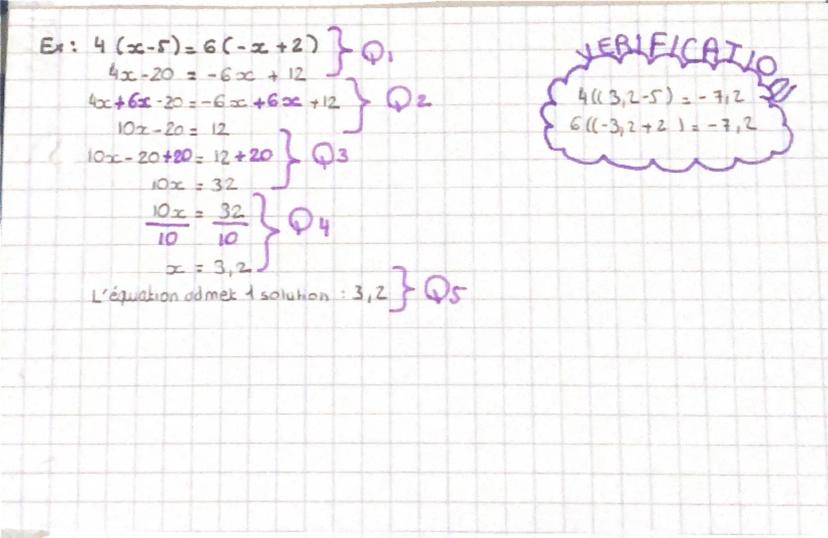 Ex: 4 (x-5) = 6 (-x+2) } Q1
4x-20 = -6x + 12
4x+6x-20 = -6x+6x+12 } Q2
10x-20 = 12
10x-20+20 = 12+20 } Q3
10x = 32
10x/10 = 32/10 } Q4
x = 3,2
L'équation admet 1 solution : 3,2 } Q5
VERIFICATION
4((3,2-5) = -7,2
6((-3,2+2) = -7,2